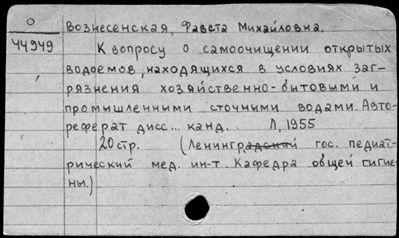 О Вознесенская, Фавста Михайловна.
44949 К вопросу о самоочищении открытых
водоемов, находящихся в условиях заг-
рязнения хозяйственно-бытовыми и
промышленными сточными водами. Авто-
реферат дисс... канд. Л, 1955
20стр. (Ленинградский гос. педиат-
рический мед. ин-т. Кафедра общей гигие-
ны.)